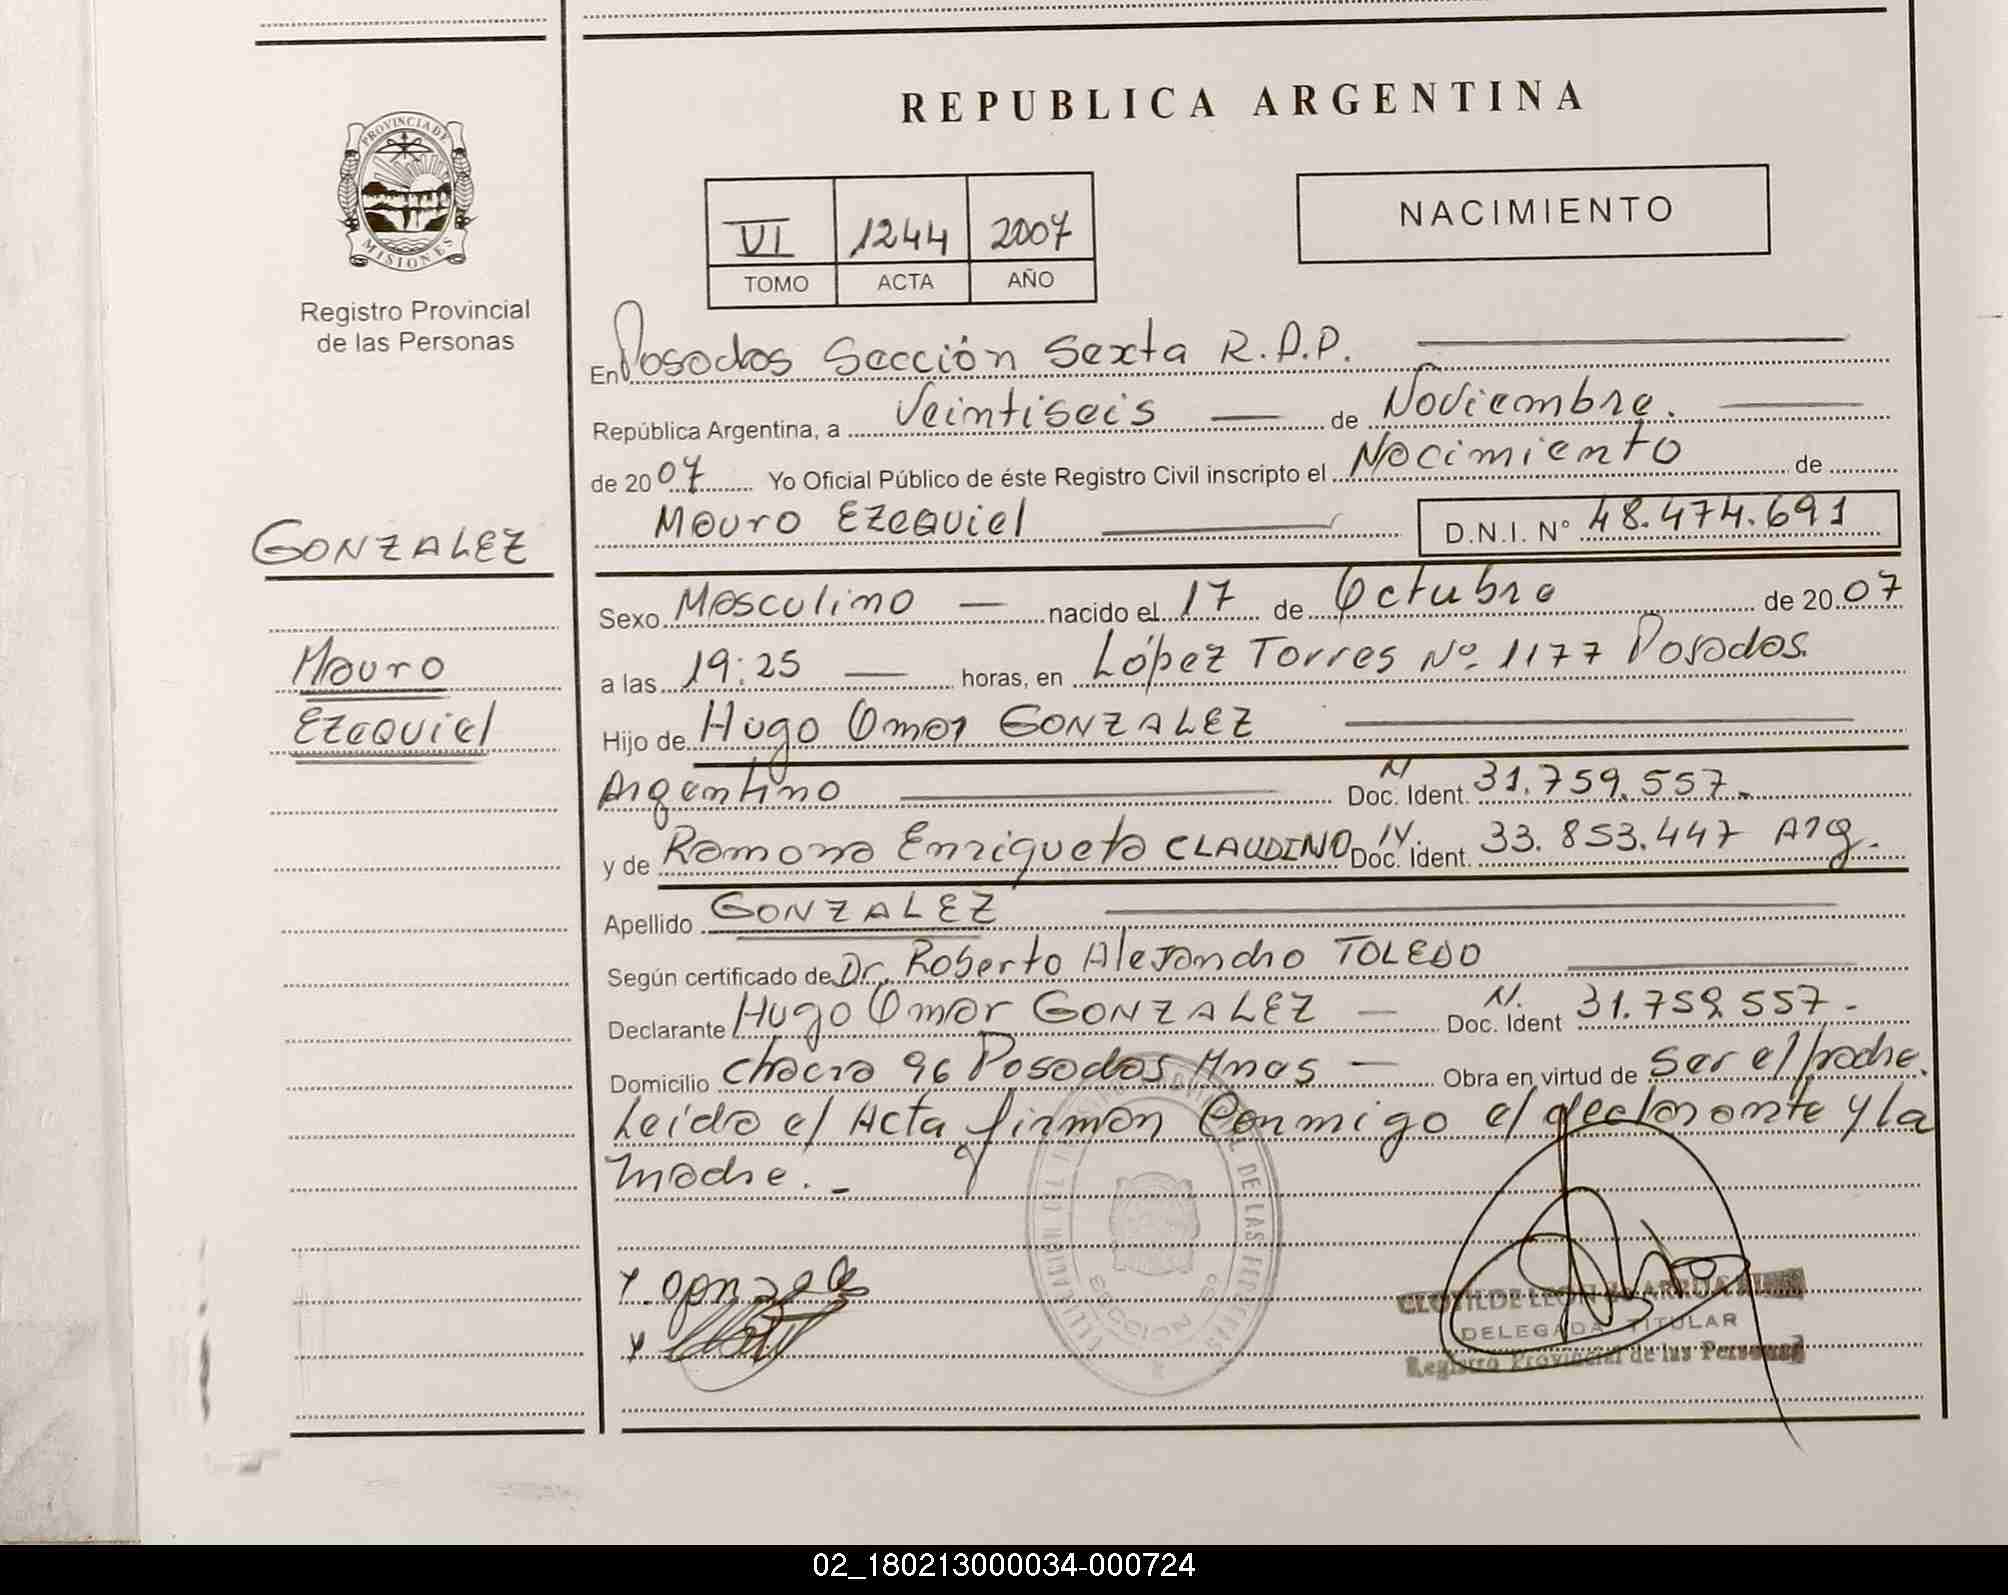 REPUBLICA ARGENTINA
PROVINCIA DE
MISIONES
Registro Provincial
de las Personas
VI 1244 2007
TOMO ACTA AÑO
NACIMIENTO
En Posadas Sección Sexta R.P.P.
República Argentina, a Veintiseis de Noviembre.
de 2007 Yo Oficial Público de éste Registro Civil inscripto el Nacimiento de
Mauro EZEQUIEL D.N.I. N° 48.474.691
GONZALEZ
Mauro
EZEQUIEL
Sexo Masculino nacido el 17 de Octubre de 2007
a las 19:25 horas, en López Torres Nº 1177 Posadas.
Hijo de Hugo Omar GONZALEZ
Argentino Doc. Ident. N 31.759.557.
y de Ramona Enriqueta CLAUDINO Doc. Ident. N. 33.853.447 Arg.
Apellido GONZALEZ
Según certificado de Dr. Roberto Alejandro TOLEDO
Declarante Hugo Omar GONZALEZ Doc. Ident N. 31.759.557.-
Domicilio chacra 96 Posadas Mnes Obra en virtud de Ser el padre.
Leída el Acta firman Conmigo el declarante y la
madre.-
DE LAS PERSONAS
SECCION 6º
CLOTILDE
DELEGADA TITULAR
Registro Provincial de las Personas
02_180213000034-000724